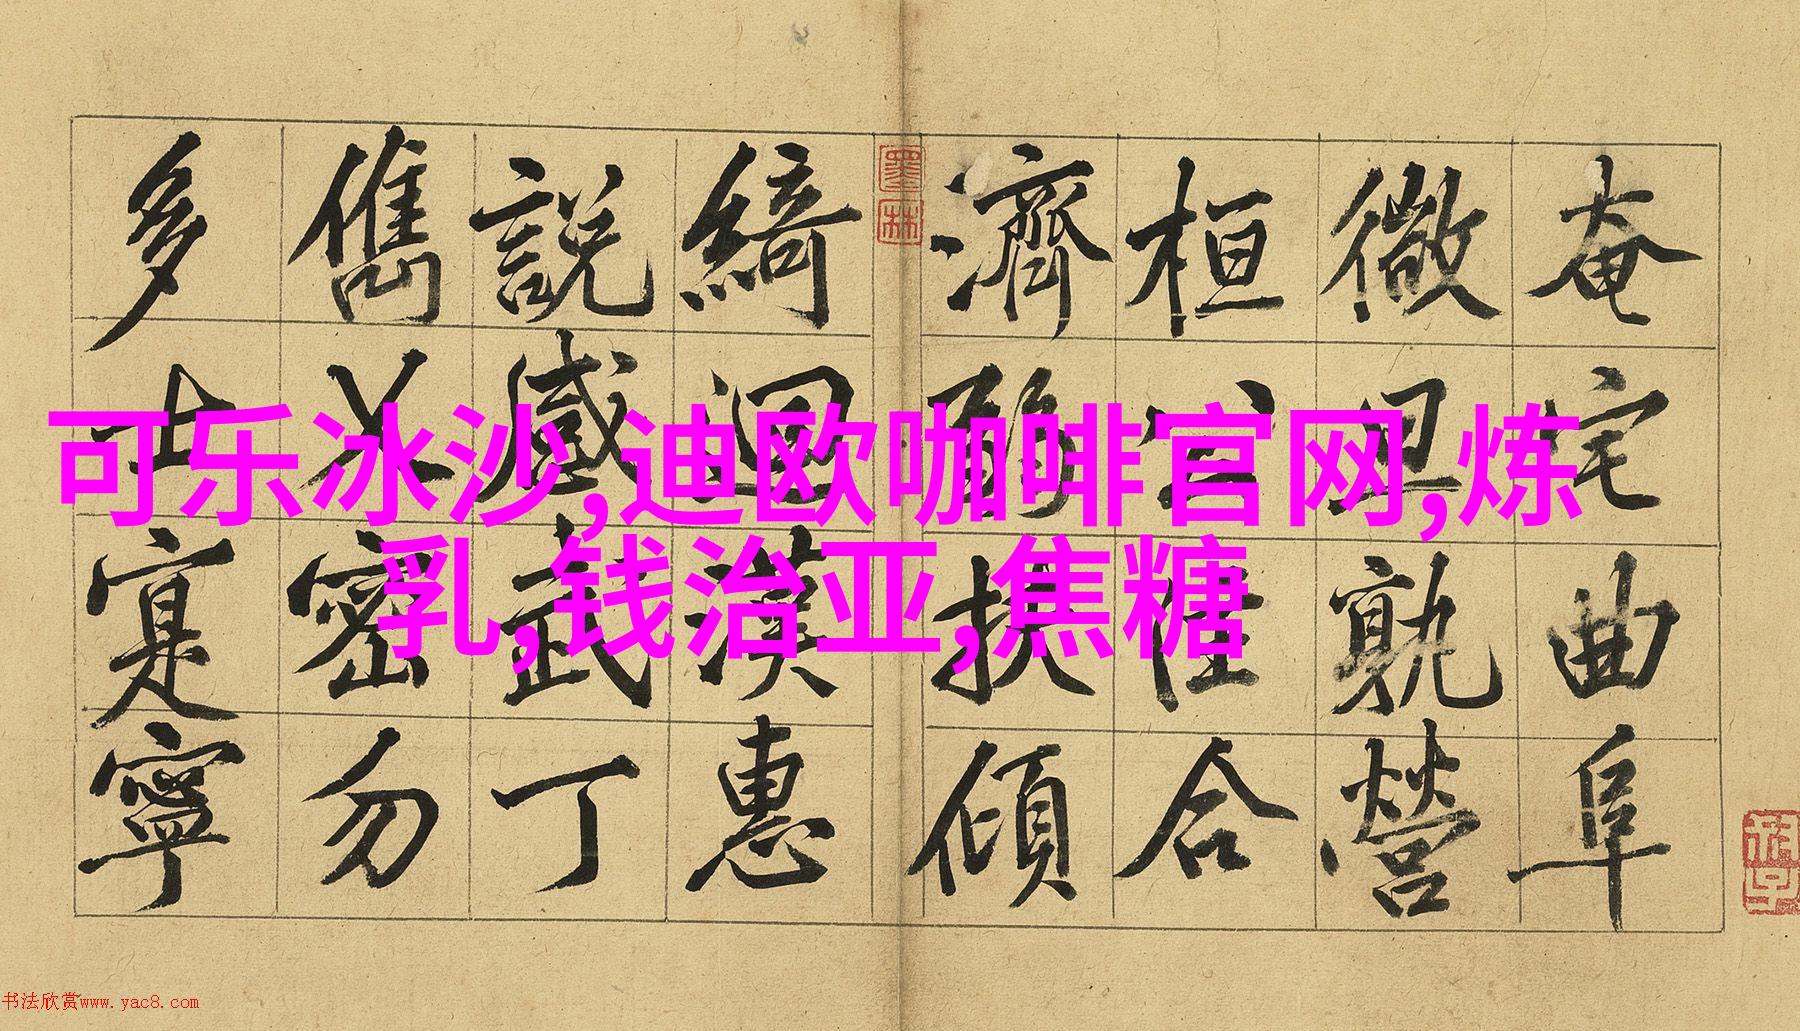 奄宅曲阜
微旦孰營
桓公合
濟弱扶傾
綺迴漢惠
說感武丁
儁乂密勿
多士寔寧
墨林
可乐冰沙,迪欧咖啡官网,炼
乳,钱治亚,焦糖
书法欣赏www.yac8.com